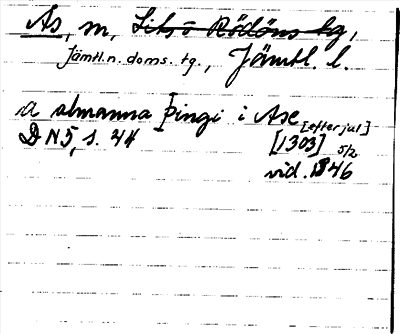 Ås, m, Lits o Rödöns tg,
Jämtl.n. doms. tg., Jämtl. l.
a almanna Þingi i Ase [efter jul]
DN 5, s. 44 [1303] 5/2
vid. 1346